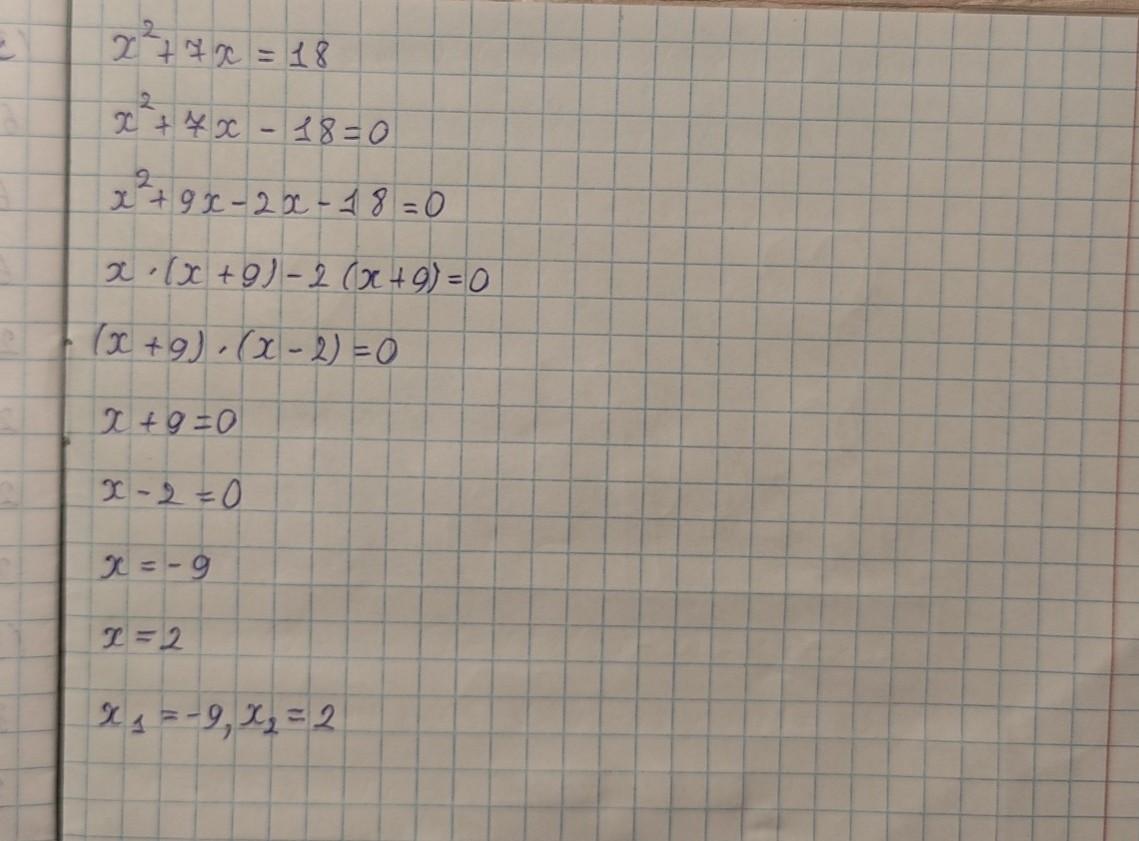 x²+7x=18
x²+7x-18=0
x²+9x-2x-18=0
x·(x+9)-2(x+9)=0
(x+9)·(x-2)=0
x+9=0
x-2=0
x=-9
x=2
x₁=-9, x₂=2